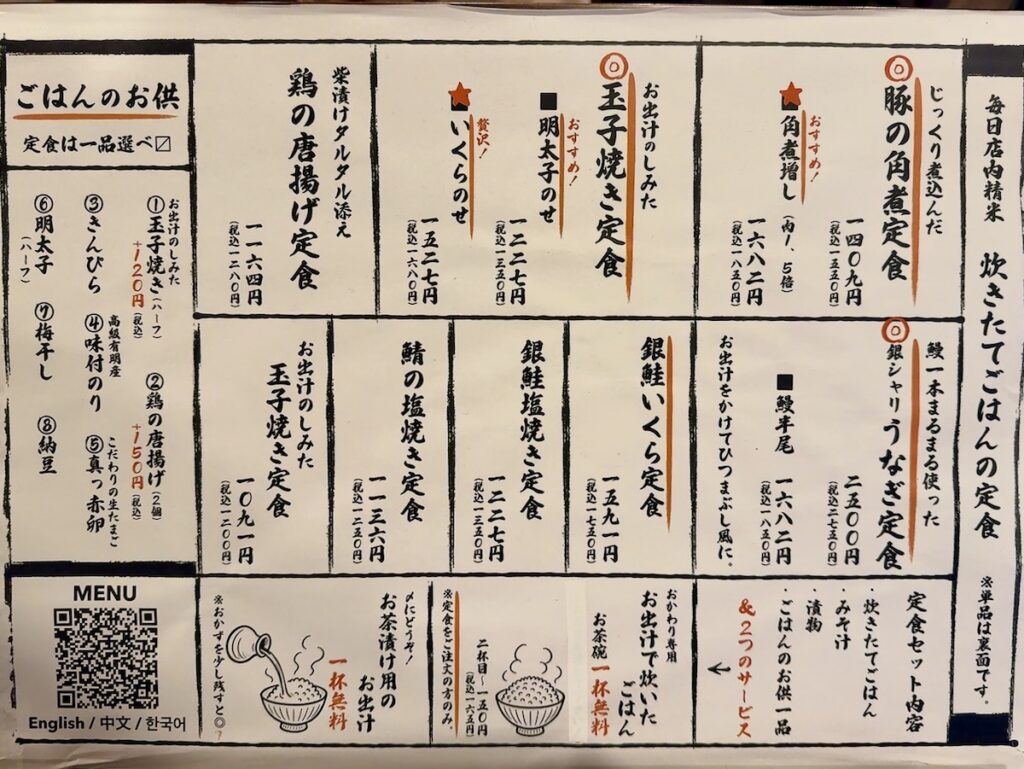 毎日店内精米 炊きたてごはんの定食 ※単品は裏面です。
じっくり煮込んだ
◎豚の角煮定食
一四〇九円
(税込一五五〇円)
おすすめ!
★角煮増し(肉1、5倍)
一六八二円
(税込一八五〇円)
お出汁のしみた
◎玉子焼き定食
おすすめ!
■明太子のせ
一二二七円
(税込一三五〇円)
贅沢!
★いくらのせ
一五二七円
(税込一六八〇円)
柴漬けタルタル添え
鶏の唐揚げ定食
一一六四円
(税込一二八〇円)
鰻一本まるまる使った
◎銀シャリうなぎ定食
二五〇〇円
(税込二七五〇円)
■鰻半尾
一六八二円
(税込一八五〇円)
お出汁をかけてひつまぶし風に。
銀鮭いくら定食
一五九一円
(税込一七五〇円)
銀鮭塩焼き定食
一二二七円
(税込一三五〇円)
鯖の塩焼き定食
一一三六円
(税込一二五〇円)
お出汁のしみた
玉子焼き定食
一〇九一円
(税込一二〇〇円)
定食セット内容
・炊きたてごはん
・みそ汁
・漬物
・ごはんのお供一品
&2つのサービス
←
おかわり専用
お出汁で炊いた
ごはん
お茶碗一杯無料
二杯目〜一五〇円
(税込一六五円)
※定食をご注文の方のみ。
〆にどうぞ!
お茶漬け用の
お出汁
一杯無料
※おかずを少し残すと◎?
ごはんのお供
定食は一品選べ〼
お出汁のしみた
①玉子焼き(ハーフ)
+120円(税込)
②鶏の唐揚げ(2個)
+150円(税込)
③きんぴら
高級有明産
④味付のり
こだわりの生たまご
⑤真っ赤卵
⑥明太子(ハーフ)
⑦梅干し
⑧納豆
MENU
English / 中文 / 한국어